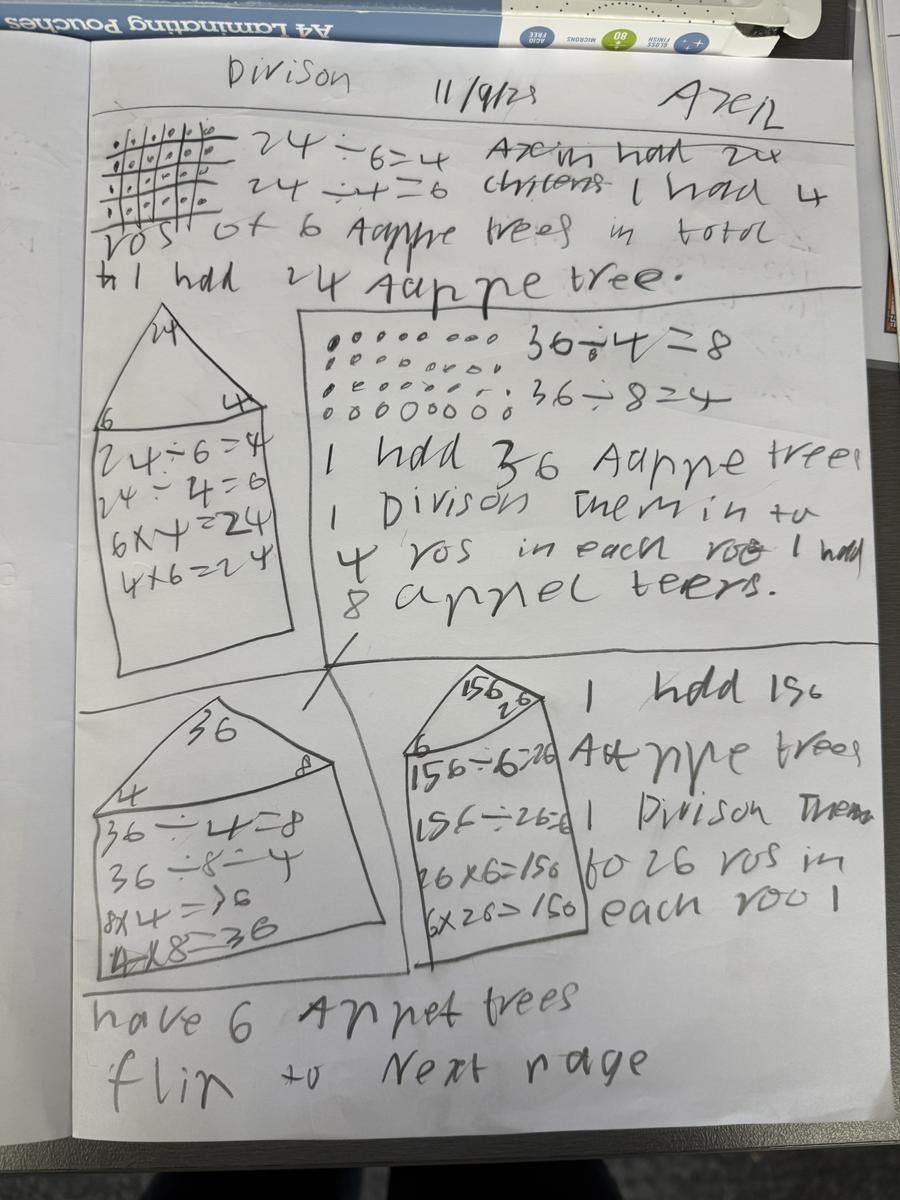 A4 Laminating Pouches
ACID FREE
80 MICRONS
GLOSS FINISH
Divison 11/9/25
24 ÷ 6=4 had 24
24 ÷4=6 1 had 4
ros of 6 Aappe trees in totol
1 hdd 24 Aappe tree.
24
6 4
24÷6=4
24÷4=6
6x4=24
4x6=24
36÷4=8
36÷8=4
1 hdd 36 Aappe trees
1 Divison Them in to
4 ros in each roo 1 hdd
8 appel teers.
36
4 8
36÷4=8
36÷8=4
8x4=36
4x8=36
156
6 26
156÷6=26
156÷26=6
26x6=156
6x26=156
1 hdd 156
Appe trees
1 Divison Them
to 26 ros in
each roo 1
have 6 Appet trees
flip to Next page